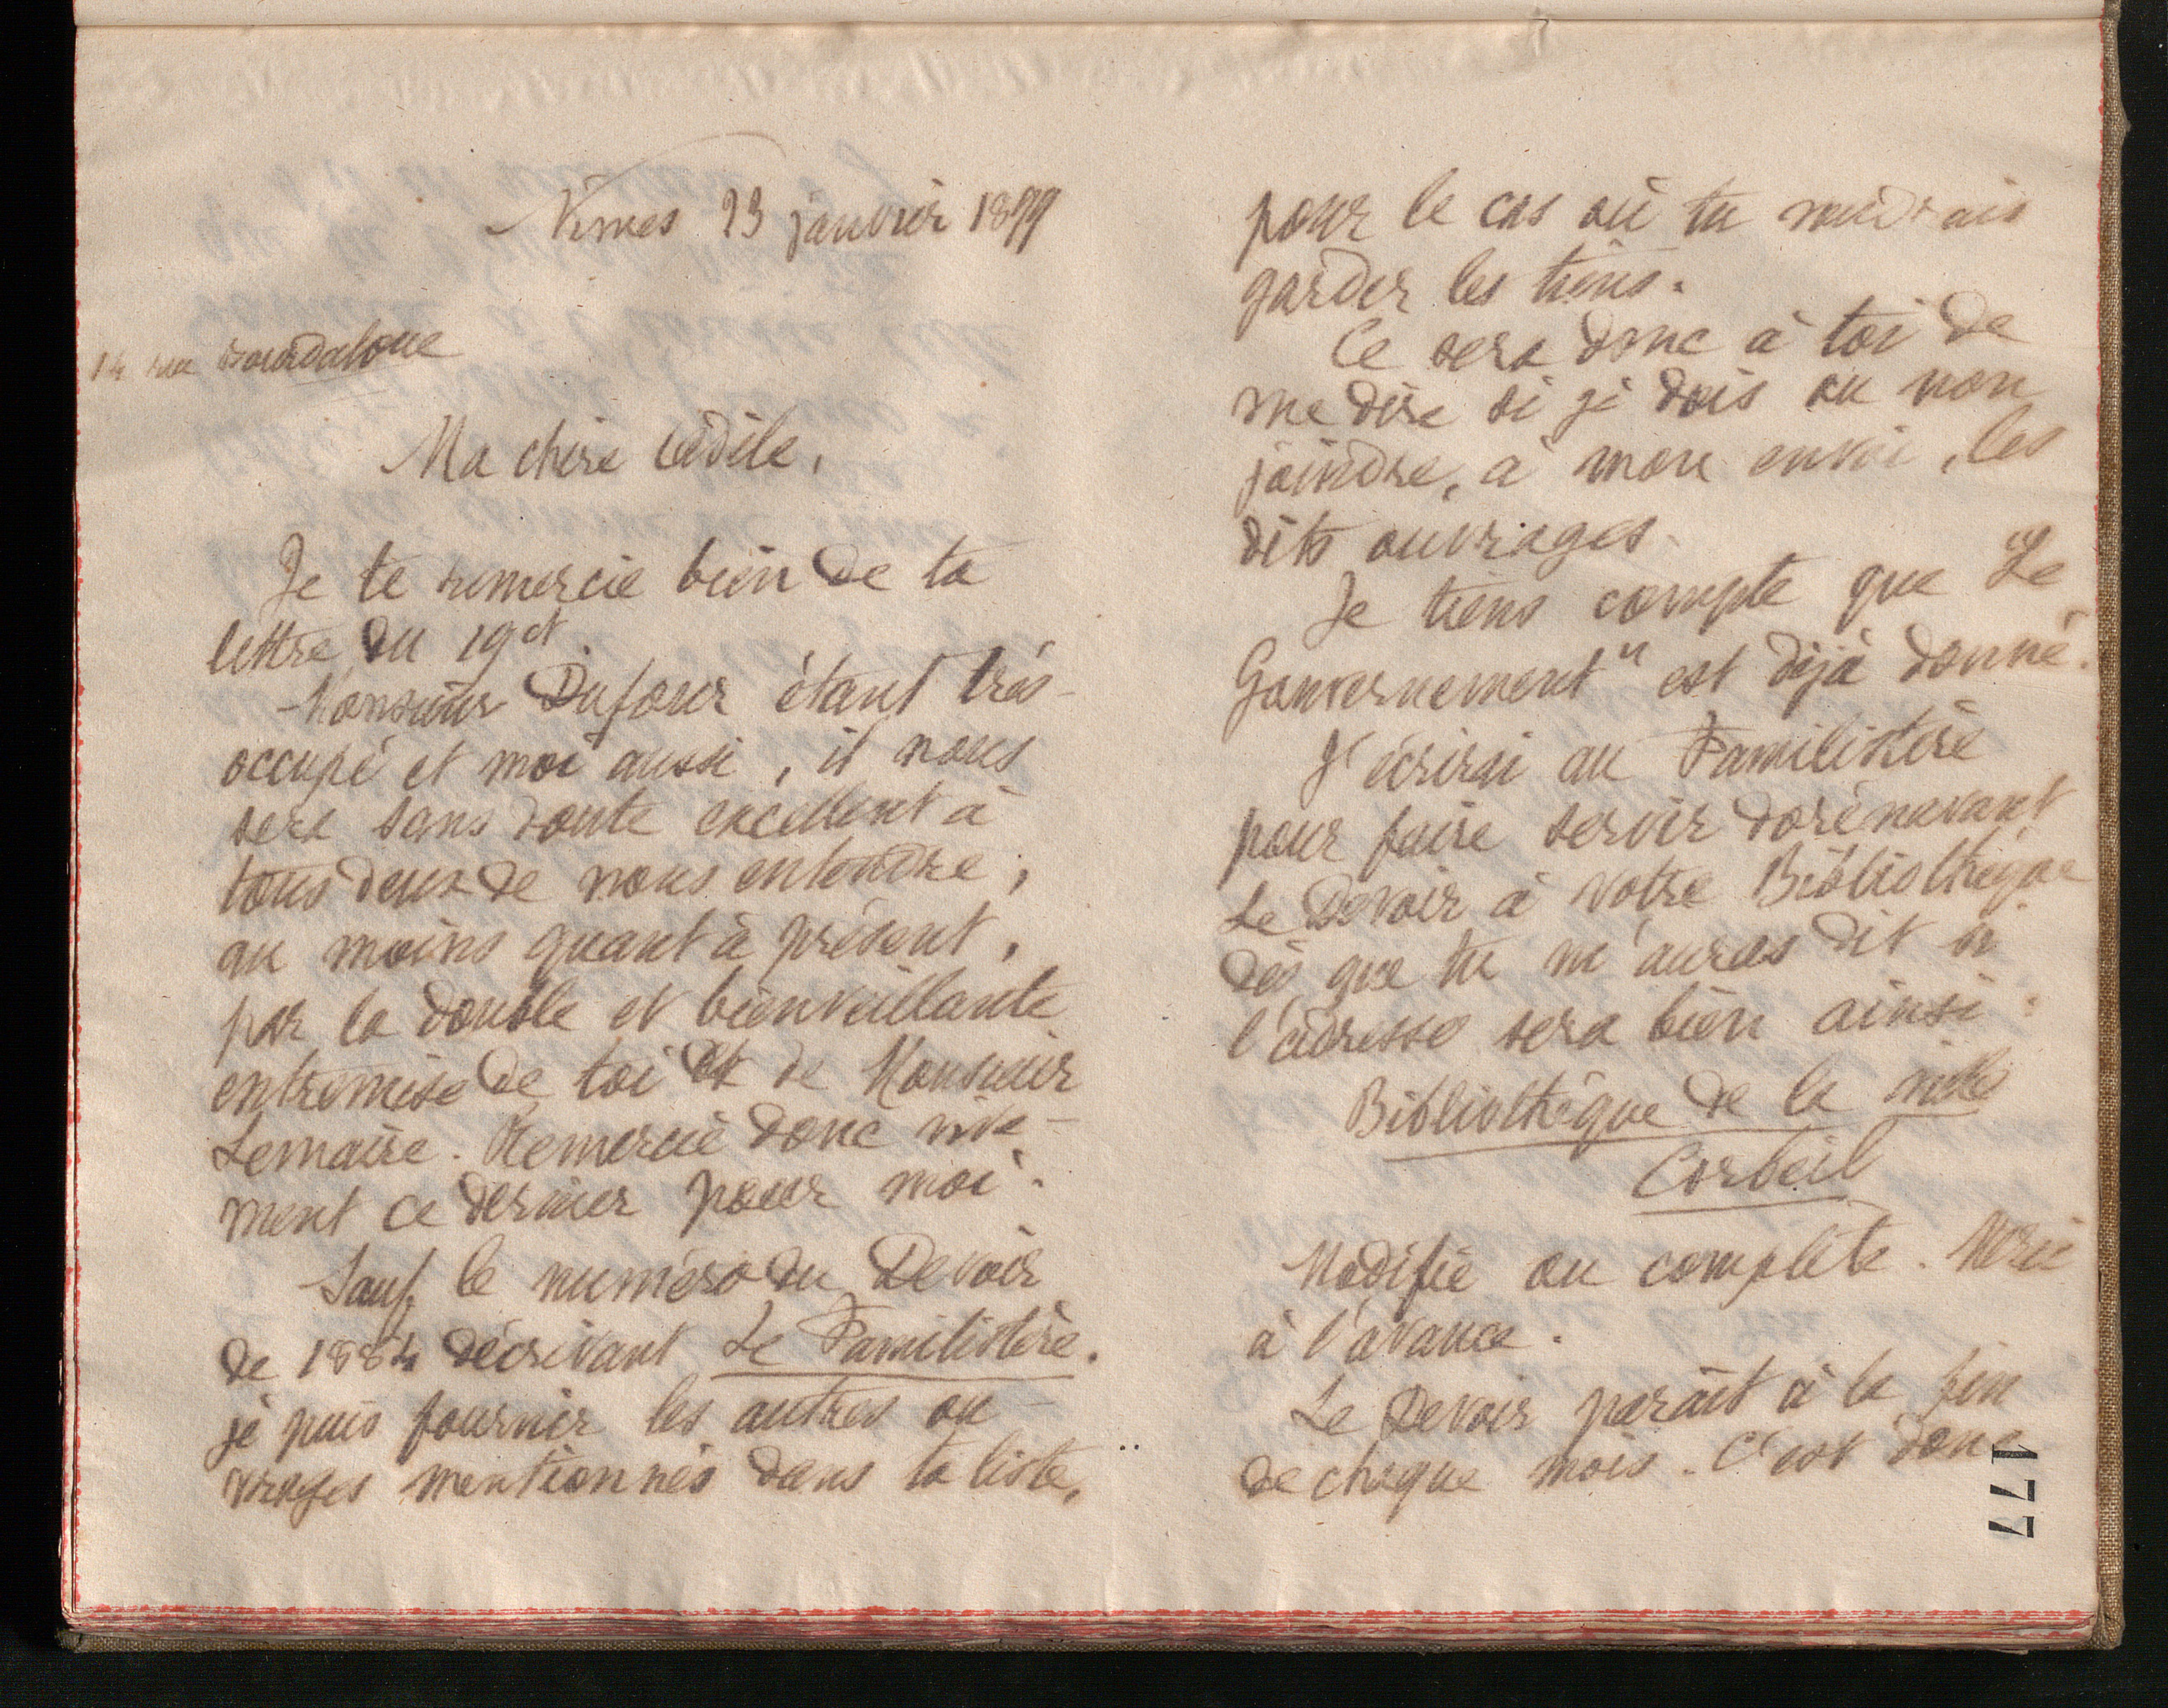 Nîmes 23 janvier 1899
14 rue Bourdaloue
Ma chère Cédile,
Je te remercie bien de ta
lettre du 19 ct.
Monsieur Dufour étant très-
occupé et moi aussi, il nous
sera sans doute excellent à
tous deux de nous entendre,
au moins quant à présent,
par la double et bienveillante
entremise de toi et de Monsieur
Lemaire. Remercie donc vive-
ment ce dernier pour moi.
Sauf le numéro du Devoir
de 1884 décrivant Le Familistère.
je puis fournir les autres ou-
vrages mentionnés dans ta liste,
pour le cas où tu voudrais
garder les tiens.
Ce sera donc à toi de
me dire si je dois ou non
joindre, à mon envoi, les
dits ouvrages.
Je tiens compte que "Le
Gouvernement" est déjà donné.
J'écrirai au Familistère
pour faire servir dorénavant
Le Devoir à votre Bibliothèque
dès que tu m'auras dit si
l'adresse sera bien ainsi :
Bibliothèque de la ville
Corbeil
Modifie ou complète. Merci
à l'avance.
Le Devoir paraît à la fin
de chaque mois. C'est donc
177